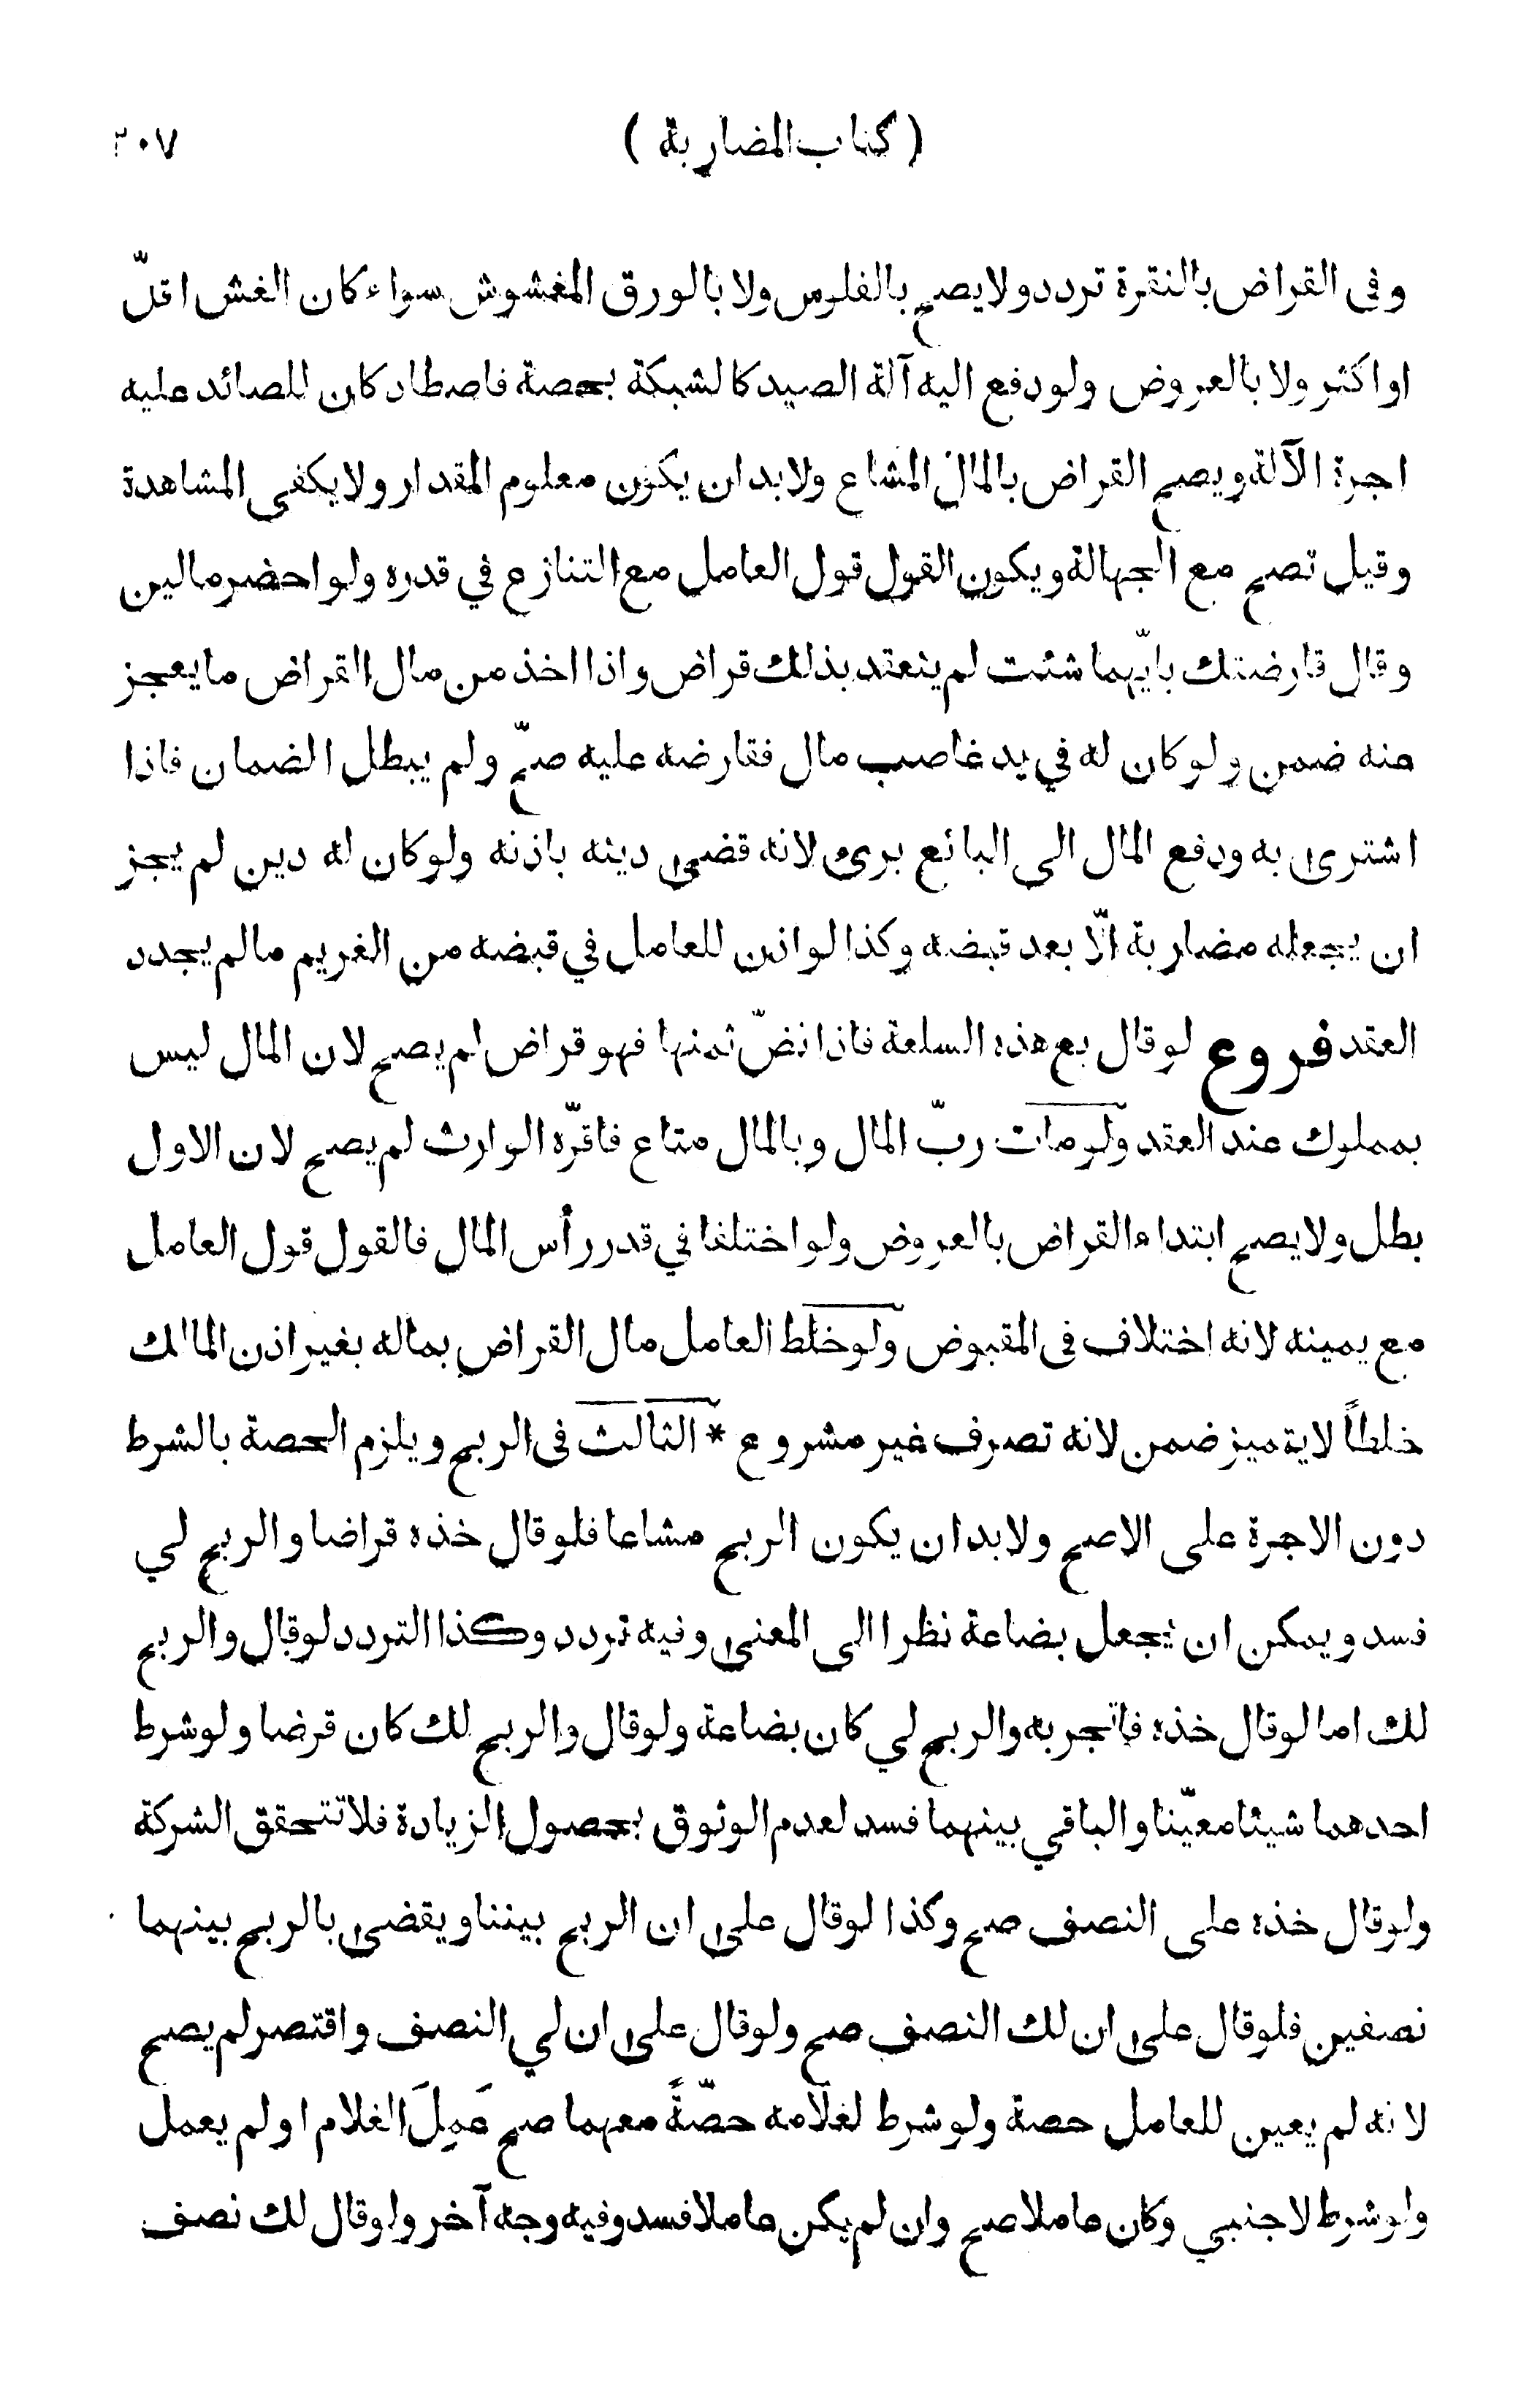 ( كتاب المضاربة ) ٢٠٧
وفى القراض بالنقرة تردد ولا يصح بالفلوس ولا بالورق المغشوش سواء كان الغش اقلّ
او اكثر ولا بالعروض ولو دفع اليه آلة الصيد كالشبكة بحصة فاصطاد كان للصائد عليه
اجرة الآلة ويصح القراض بالمال المشاع ولا بد ان يكون معلوم المقدار ولا يكفى المشاهدة
وقيل تصح مع الجهالة ويكون القول قول العامل مع التنازع في قدره ولو احضر مالين
وقال قارضتك بايّهما شئت لم ينعقد بذلك قراض واذا اخذ من مال القراض ما يعجز
عنه ضمن ولو كان له في يد غاصب مال فقارضه عليه صحّ ولم يبطل الضمان فاذا
اشترى به ودفع المال الى البائع برئ لانه قضى دينه باذنه ولو كان له دين لم يجز
ان يجعله مضاربة الّا بعد قبضه وكذا لو اذن للعامل في قبضه من الغريم ما لم يجدد
العقد فروع لو قال بع هذه السلعة فاذا نضّ ثمنها فهو قراض لم يصح لان المال ليس
بمملوك عند العقد ولو مات ربّ المال وبالمال متاع فاقرّه الوارث لم يصح لان الاول
بطل ولا يصح ابتداء القراض بالعروض ولو اختلفا في قدر رأس المال فالقول قول العامل
مع يمينه لانه اختلاف فى المقبوض ولو خلط العامل مال القراض بماله بغير اذن المالك
خلطاً لا يتميز ضمن لانه تصرف غير مشروع * الثالث فى الربح ويلزم الحصة بالشرط
دون الاجرة على الاصح ولا بد ان يكون الربح مشاعا فلو قال خذه قراضا والربح لي
فسد ويمكن ان يجعل بضاعة نظرا الى المعنى وفيه تردد وكذا التردد لو قال والربح
لك اما لو قال خذه فاتجر به والربح لي كان بضاعة ولو قال والربح لك كان قرضا ولو شرط
احدهما شيئا معيّنا والباقي بينهما فسد لعدم الوثوق بحصول الزيادة فلا تتحقق الشركة
ولو قال خذه على النصف صح وكذا لو قال على ان الربح بيننا ويقضى بالربح بينهما
نصفين فلو قال على ان لك النصف صح ولو قال على ان لي النصف واقتصر لم يصح
لانه لم يعين للعامل حصة ولو شرط لغلامه حصّةً معهما صح عَمِلَ الغلام او لم يعمل
ولو شرط لاجنبي وكان عاملا صح وان لم يكن عاملا فسد وفيه وجه آخر ولو قال لك نصف